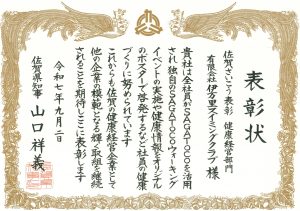 表彰状
佐賀さいこう表彰 健康経営部門
有限会社 伊万里スイミングクラブ 様
貴社は全社員がSAGATOCOを活用
され独自のSAGATOCOウォーキング
イベントの実施や健康情報をオリジナル
のポスターで啓発するなど社員の健康
づくりに努められています
これからも佐賀の健康経営企業として
他の企業の模範となる輝く取組を継続
されることを期待しここに表彰します
令和七年九月二日
佐賀県知事 山口祥義